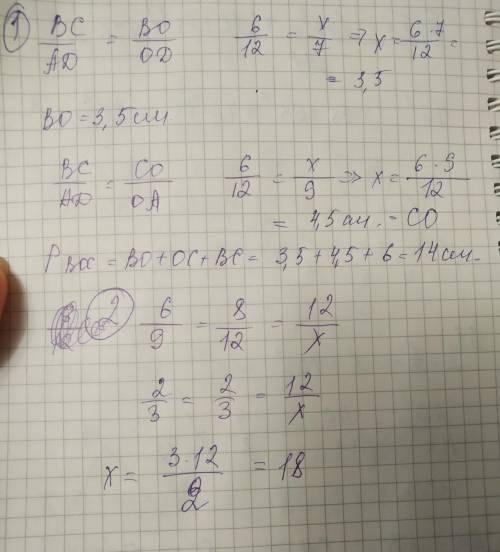 1) BC/AD = BO/OD 6/12 = x/7 => x = 6·7/12 =
= 3,5
BO = 3,5 см
BC/AD = CO/OA 6/12 = x/9 => x = 6·9/12
= 4,5 см. = CO
P BOC = BO + OC + BC = 3,5 + 4,5 + 6 = 14 см.
2 6/9 = 8/12 = 12/x
2/3 = 2/3 = 12/x
x = 3·12/2 = 18